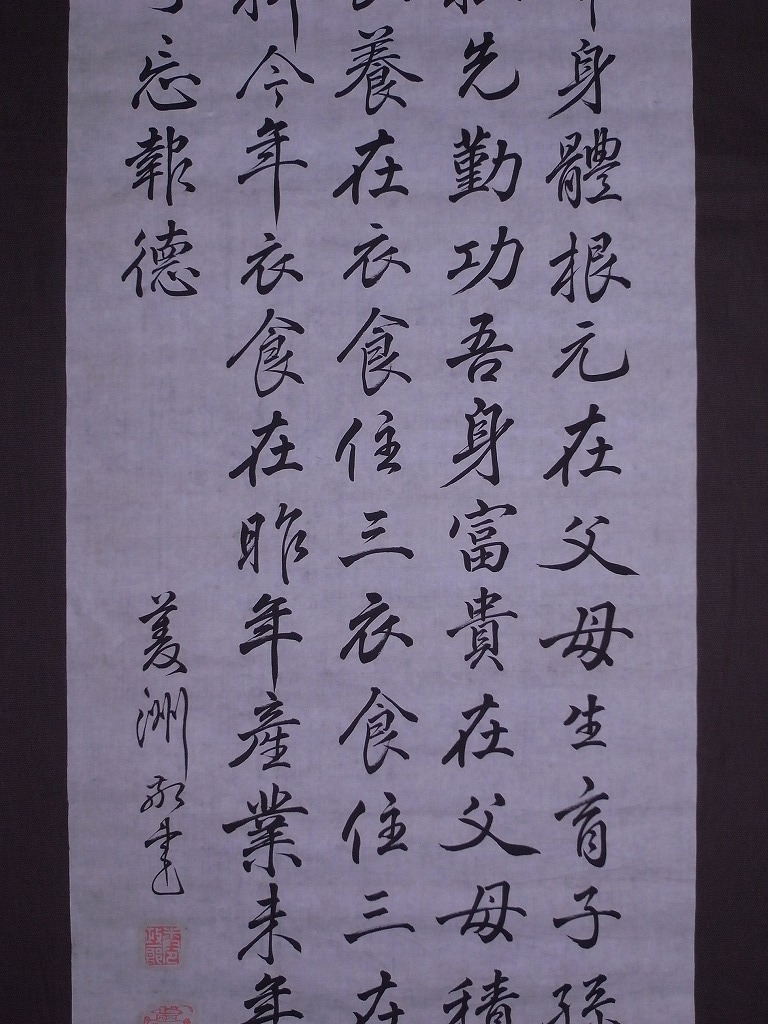 身體根元在父母生育子孫
先勤功吾身富貴在父母積
養在衣食住三衣食住三在
今年衣食在昨年産業来年
忘報徳
菱洲敬書